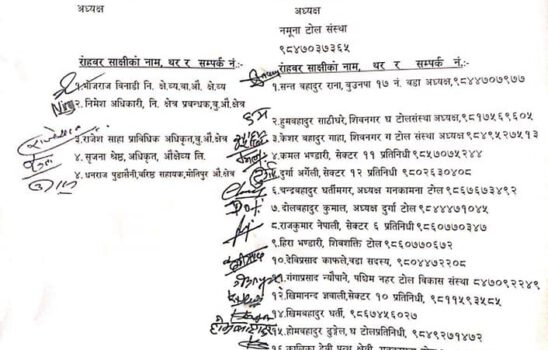 अध्यक्ष
रोहवर साक्षीको नाम, थर र सम्पर्क नं.:-
१.भोजराज विनाडी नि. क्षे.व्य.वा.औ. क्षे.व्य
२.निमेश अधिकारी, नि. क्षेत्र प्रवन्धक,बु.औ.क्षेत्र
३.राजेश साहा प्राविधिक अधिकृत,बु.औ.क्षेत्र
४.सृजना श्रेष्ठ,अधिकृत, औ.क्षेव्य लि.
४.धनराज पुडासैनी,वरिष्ठ सहायक,मोतिपुर औ.क्षेत्र
अध्यक्ष
नमूना टोल संस्था
९८४७०३७३६५
रोहवर साक्षीको नाम, थर र सम्पर्क नं.:-
१.सन्त बहादुर राना, बुउनपा १७ नं. वडा अध्यक्ष,९८४४७०७९७७
२.हुमबहादुर साठीघरे, शिवनगर छ टोलसंस्था अध्यक्ष,९८१७५६९६०५
३.केशर बहादुर गाहा, शिवनगर ग टोलसंस्था अध्यक्ष,९८४९५२७५१३
४.कमल भण्डारी, सेक्टर ११ प्रतिनिधी ९८५७०७५२४४
५.दुर्गा अर्गेली, सेक्टर १२ प्रतिनिधी ९८०२६३०४०८
६.चन्द्रबहादुर घर्तीमगर, अध्यक्ष गनकामना टोल ९८६७६७३४९२
७.दोलबहादुर कुमाल, अध्यक्ष दुर्गा टोल ९८४४४७१०४५
८.राजकुमार नेपाली, सेक्टर ६ प्रतिनिधी ९८६०७७०३४७
९.हिरा भण्डारी, शिवशक्ति टोल ९८६०७७०६७२
१०.देविप्रसाद काफ्ले,वडा सदस्य, ९८०४४७२२०८
गंगाप्रसाद न्यौपाने, पश्चिम नहर टोल विकास संस्था ९८४७०९२२४९
१२.खिमानन्द ज्ञवाली,सेक्टर १० प्रतिनिधी, ९८११५९३५८५
१४.खिमबहादुर घर्ती, ९८६७४५६०२७
१५.होमबहादुर डुङ्गेल, घ टोलप्रतिनिधी, ९८४९२७१४७२
१६.कालिका देवी पन्थ